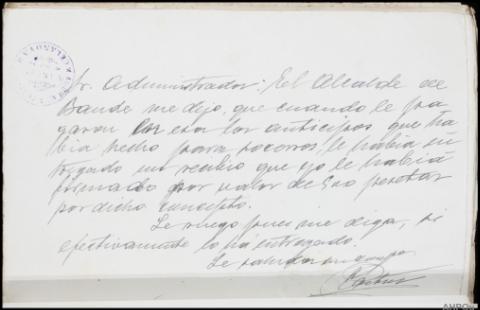 Sr. Administrador: El Alcalde de
Bande me dijo, que cuando le pa
garon los anticipos que ha
bia hecho para socorros, le habia en
tregado un recibo que yo le habia
firmado por valor de pesetas
por dicho concepto.
Le ruego pues me diga, si
efectivamente lo ha entregado.
Le saluda su